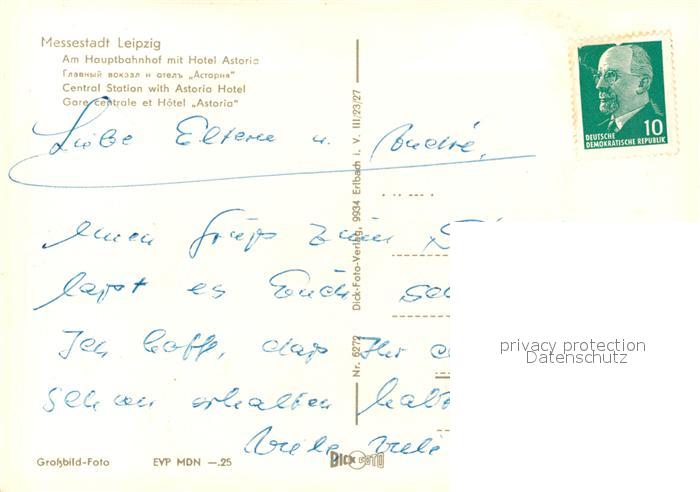 Messestadt Leipzig
Am Hauptbahnhof mit Hotel Astoria
Главный вокзал и отель „Астория"
Central Station with Astoria Hotel
Gare centrale et Hôtel „Astoria"
Liebe Eltern u. André,
einen Gruß zum
laßt es Euch
Ich hoffe, daß Ihr
schon erhalten habt
Viele viele
Großbild-Foto EVP MDN —.25
Nr. 6272 Dick-Foto-Verlag, 9934 Erlbach i. V. III/23/27
DICK FOTO
10
DEUTSCHE
DEMOKRATISCHE REPUBLIK
privacy protection
Datenschutz